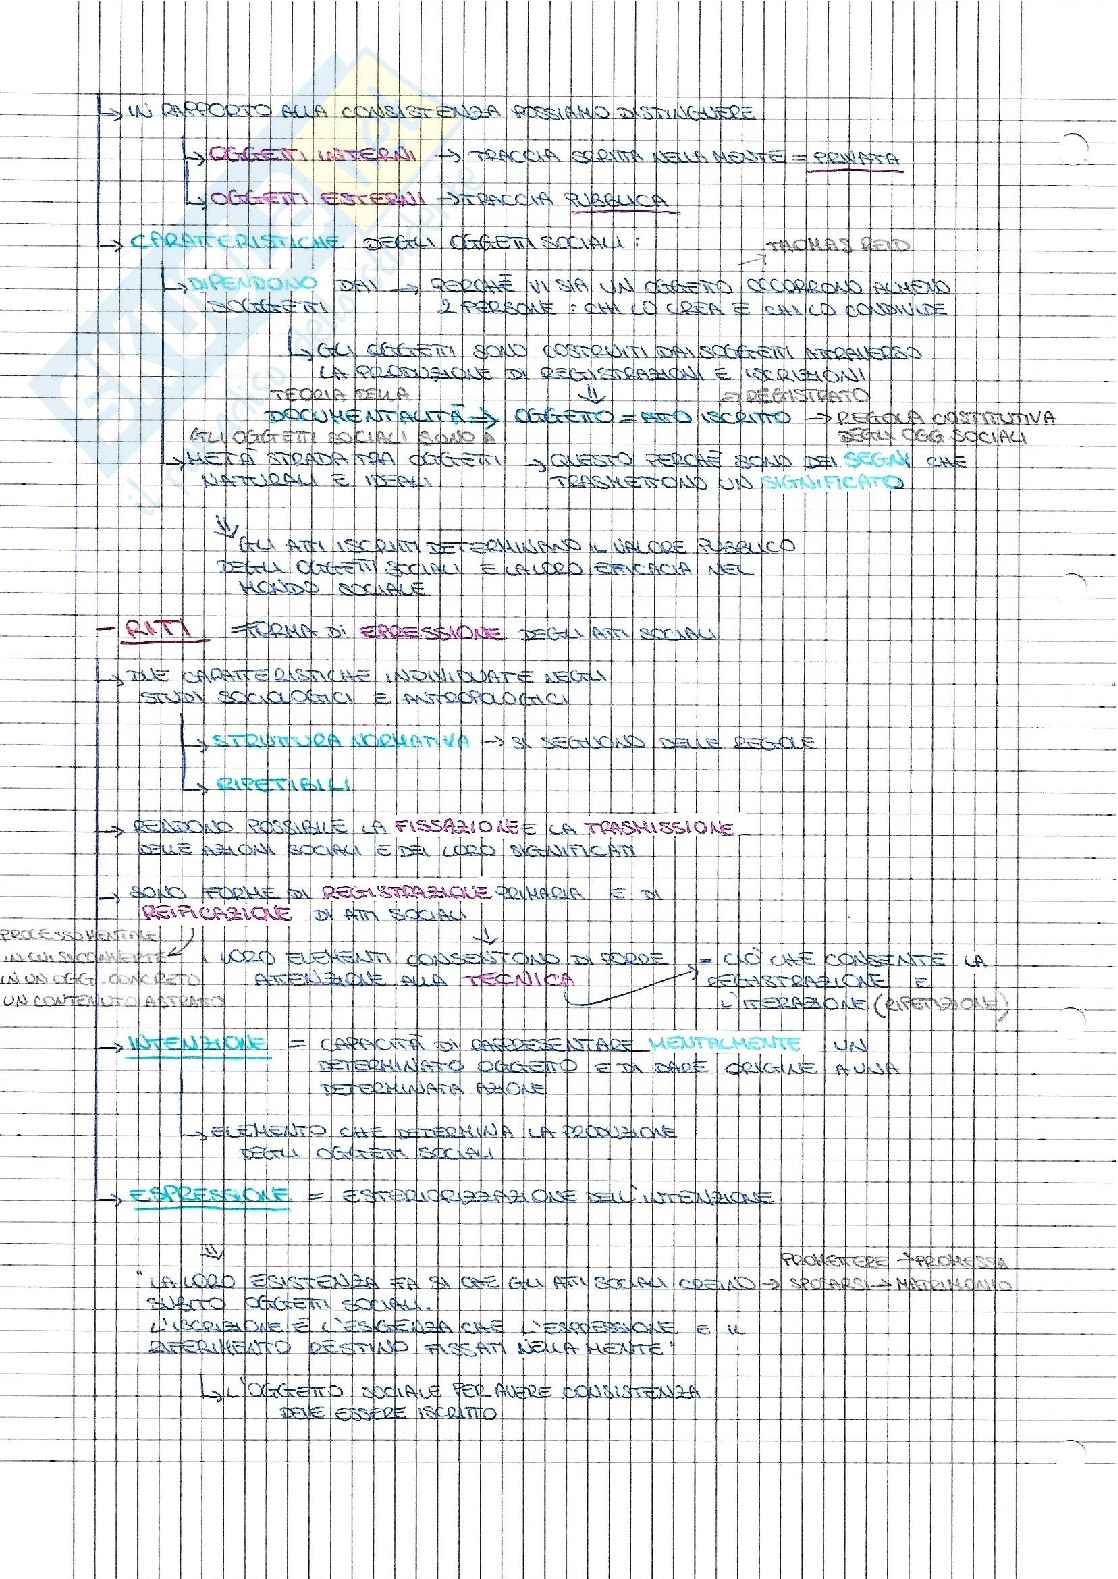 → IN RAPPORTO ALLA CONSISTENZA POSSIAMO DISTINGUERE
→ OGGETTI INTERNI → TRACCIA SCRITTA NELLA MENTE = PRIVATA
→ OGGETTI ESTERNI → TRACCIA PUBBLICA
→ CARATTERISTICHE DEGLI OGGETTI SOCIALI :
THOMAS REID
→ DIPENDONO DAI → PERCHÉ VI SIA UN OGGETTO OCCORRONO ALMENO
SOGGETTI 2 PERSONE : CHI LO CREA E CHI LO CONDIVIDE
→ GLI OGGETTI SONO COSTRUITI DAI SOGGETTI ATTRAVERSO
LA PRODUZIONE DI REGISTRAZIONI E ISCRIZIONI
TEORIA DELLA ⇓ = REGISTRATO
DOCUMENTALITÀ → OGGETTO = ATTO ISCRITTO → REGOLA COSTITUTIVA
DEGLI OGG SOCIALI
GLI OGGETTI SOCIALI SONO A
→ METÀ STRADA TRA OGGETTI → QUESTO PERCHÉ SONO DEI SEGNI CHE
NATURALI E IDEALI TRASMETTONO UN SIGNIFICATO
⇓
GLI ATTI ISCRITTI DETERMINANO IL VALORE PUBBLICO
DEGLI OGGETTI SOCIALI E LA LORO EFFICACIA NEL
MONDO SOCIALE
- RITI = FORMA DI EPRESSIONE DEGLI ATTI SOCIALI
→ DUE CARATTERISTICHE INDIVIDUATE NEGLI
STUDI SOCIOLOGICI E ANTROPOLOGICI
→ STRUTTURA NORMATIVA → SI SEGUONO DELLE REGOLE
→ RIPETIBILI
→ RENDONO POSSIBILE LA FISSAZIONE E LA TRASMISSIONE
DELLE AZIONI SOCIALI E DEI LORO SIGNIFICATI
→ SONO FORME DI REGISTRAZIONE PRIMARIA E DI
REIFICAZIONE DI ATTI SOCIALI
PROCESSO MENTALE
IN CUI SI CONVERTE
IN UN OGG. CONCRETO
UN CONTENUTO ASTRATO
⇓
I LORO ELEMENTI CONSENTONO DI PORRE
ATTENZIONE ALLA TECNICA
= CIÒ CHE CONSENTE LA
REGISTRAZIONE E
L'ITERAZIONE (RIPETIZIONE)
→ INTENZIONE = CAPACITÀ DI RAPPRESENTARE MENTALMENTE UN
DETERMINATO OGGETTO E DI DARE ORIGINE A UNA
DETERMINATA AZIONE
→ ELEMENTO CHE DETERMINA LA PRODUZIONE
DEGLI OGGETTI SOCIALI
→ ESPRESSIONE = ESTERIORIZZAZIONE DELL'INTENZIONE
⇓
PROMETTERE → PROMESSA
"LA LORO ESISTENZA FA SI CHE GLI ATTI SOCIALI CREINO → SPOSARSI → MATRIMONIO
SUBITO OGGETTI SOCIALI.
L'ISCRIZIONE È L'ESIGENZA CHE L'ESPRESSIONE E IL
RIFERIMENTO RESTINO FISSATI NELLA MENTE"
→ L'OGGETTO SOCIALE PER AVERE CONSISTENZA
DEVE ESSERE ISCRITTO